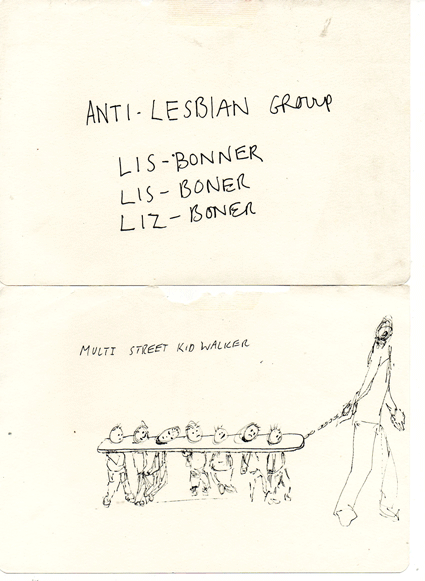 ANTI-LESBIAN GROUP
LIS-BONNER
LIS-BONER
LIZ-BONER
MULTI STREET KID WALKER